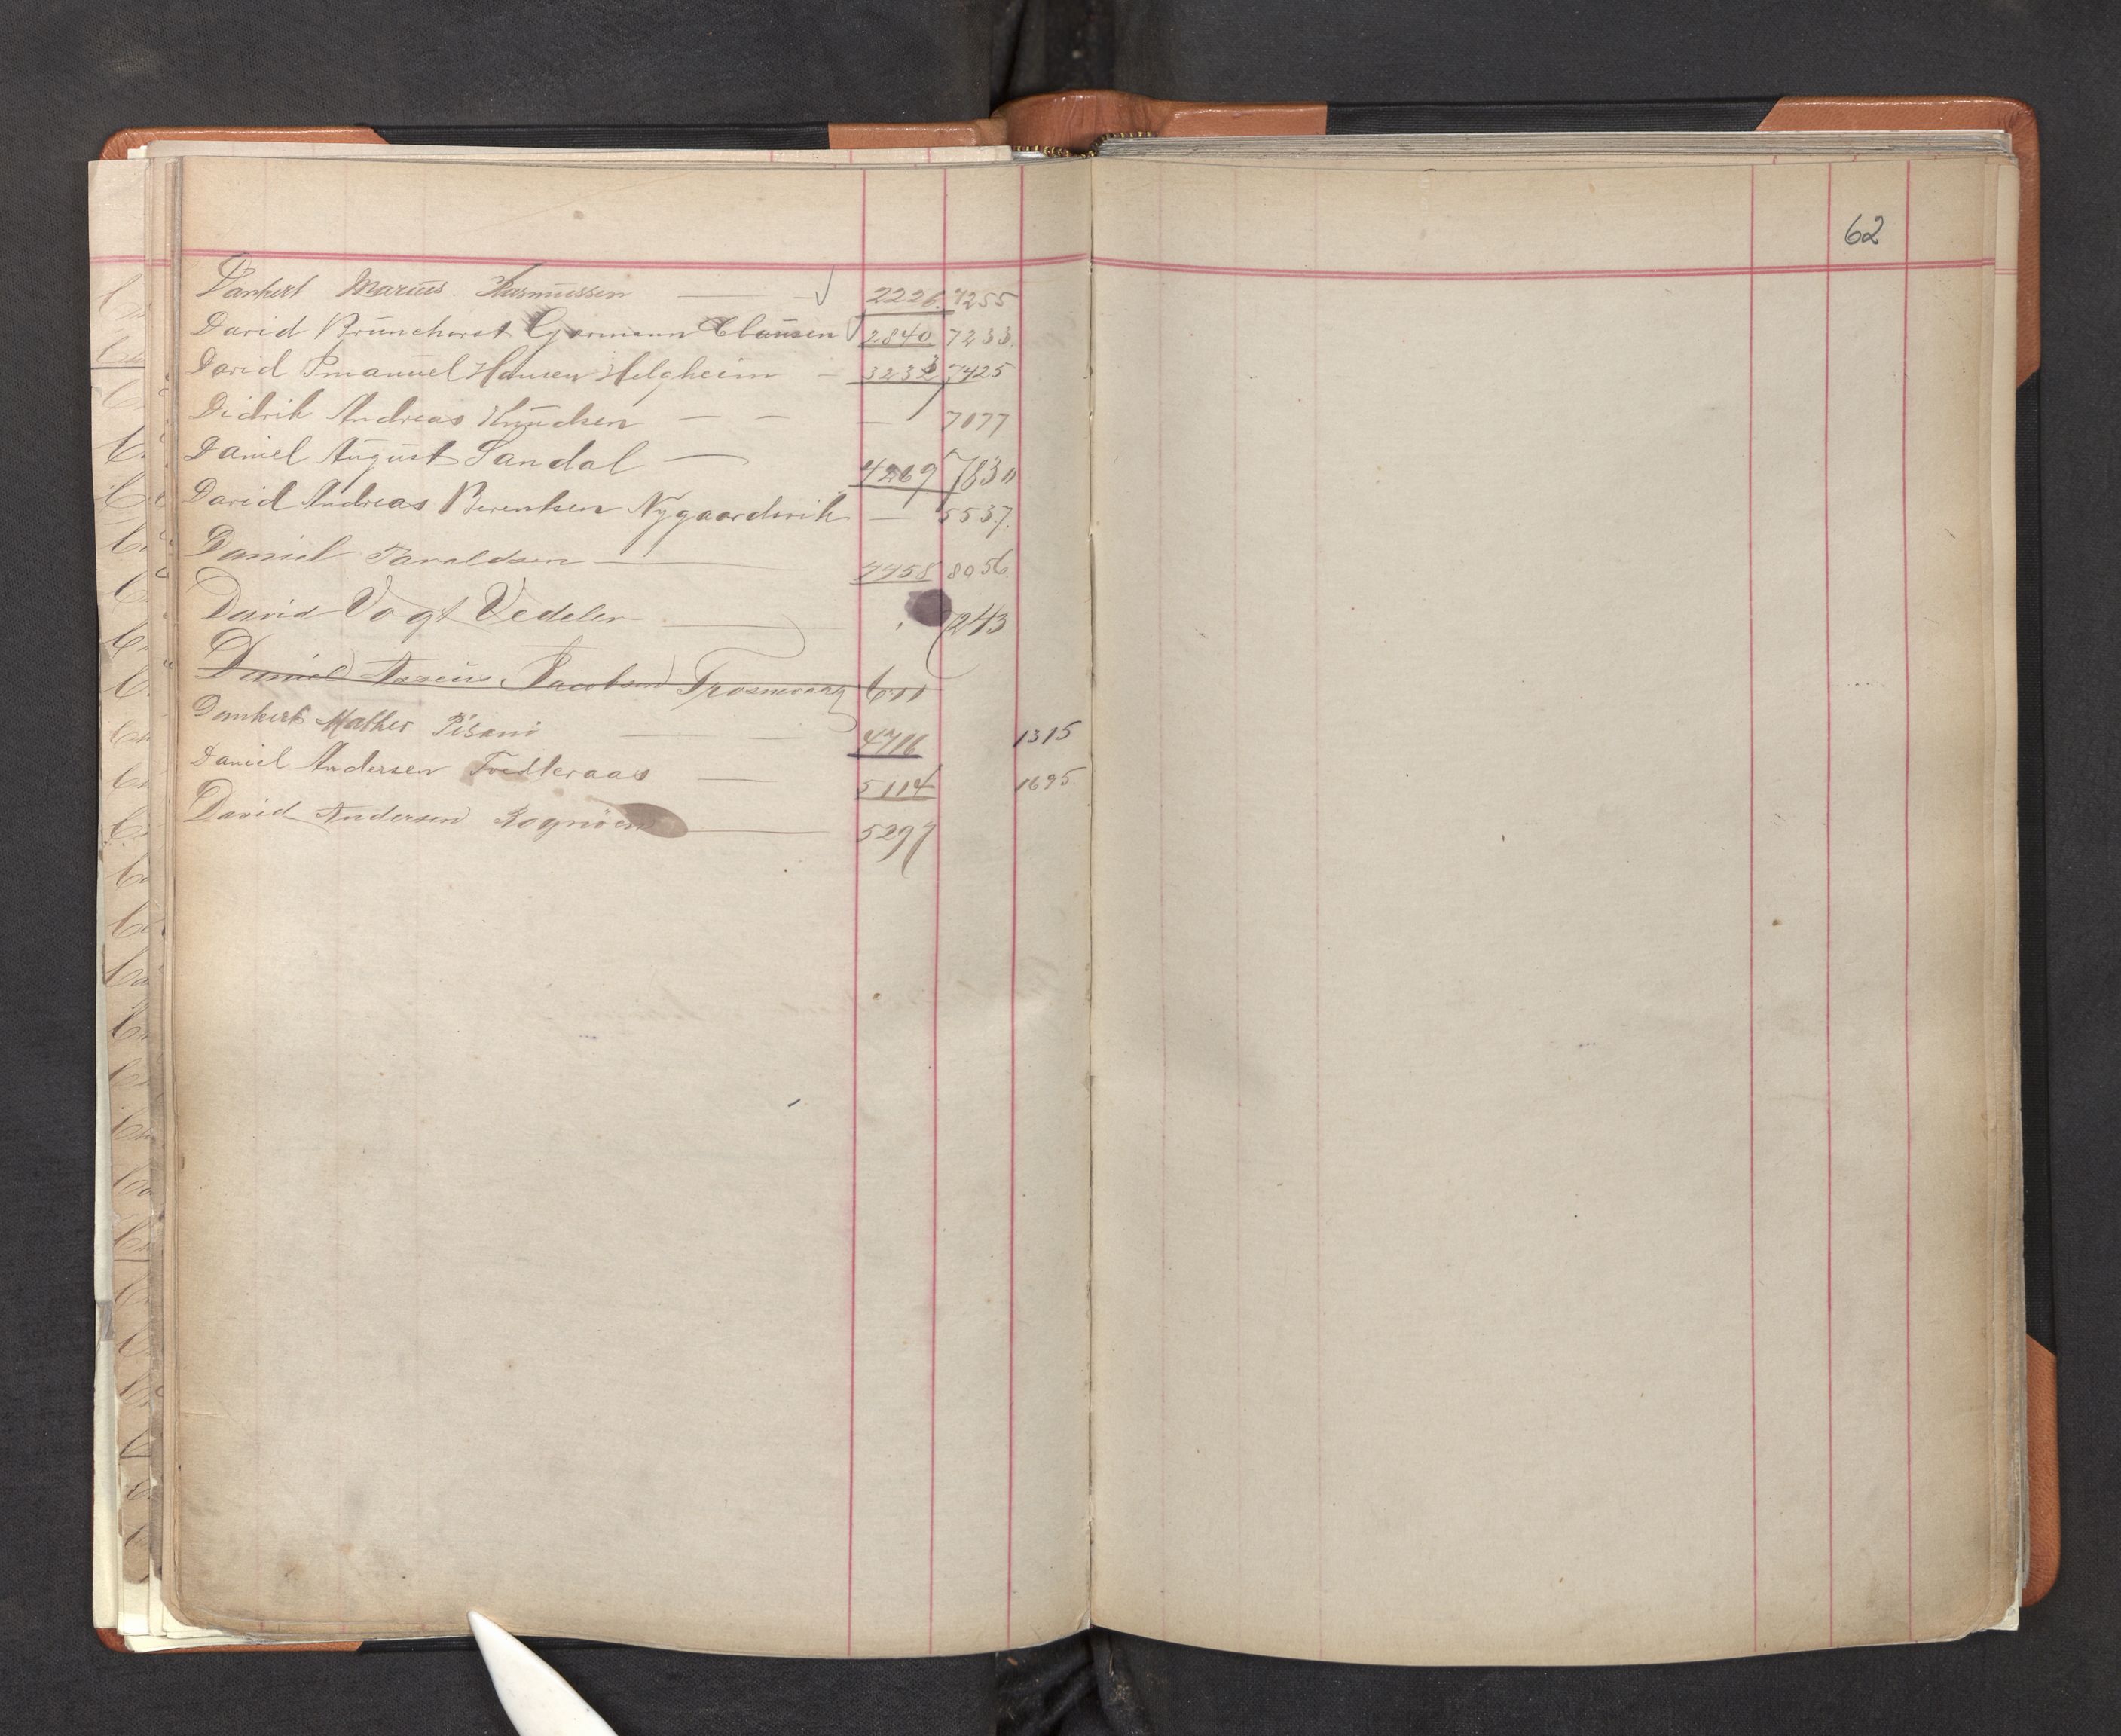 Dankert Marius Rasmussen — √ 2226. 7255
David Brunchorst Germann Clausen √ 2840 7233
David Emanuel Hansen Helgheim — 3233 7425
Didrik Andreas Knudsen — — — 7077
Daniel August Sandal — 4269 7830
David Andreas Berentsen Nygaardsvik — 5537.
Daniel Taraldsen — 4458 8056
David Vogt Vedeler — 7243
Daniel Jacobsen
Dankert Mather Pisani — — 4716 1315
Daniel Andersen Tvedteraas — 5114 1695
David Andersen Rognöen — 5297
62